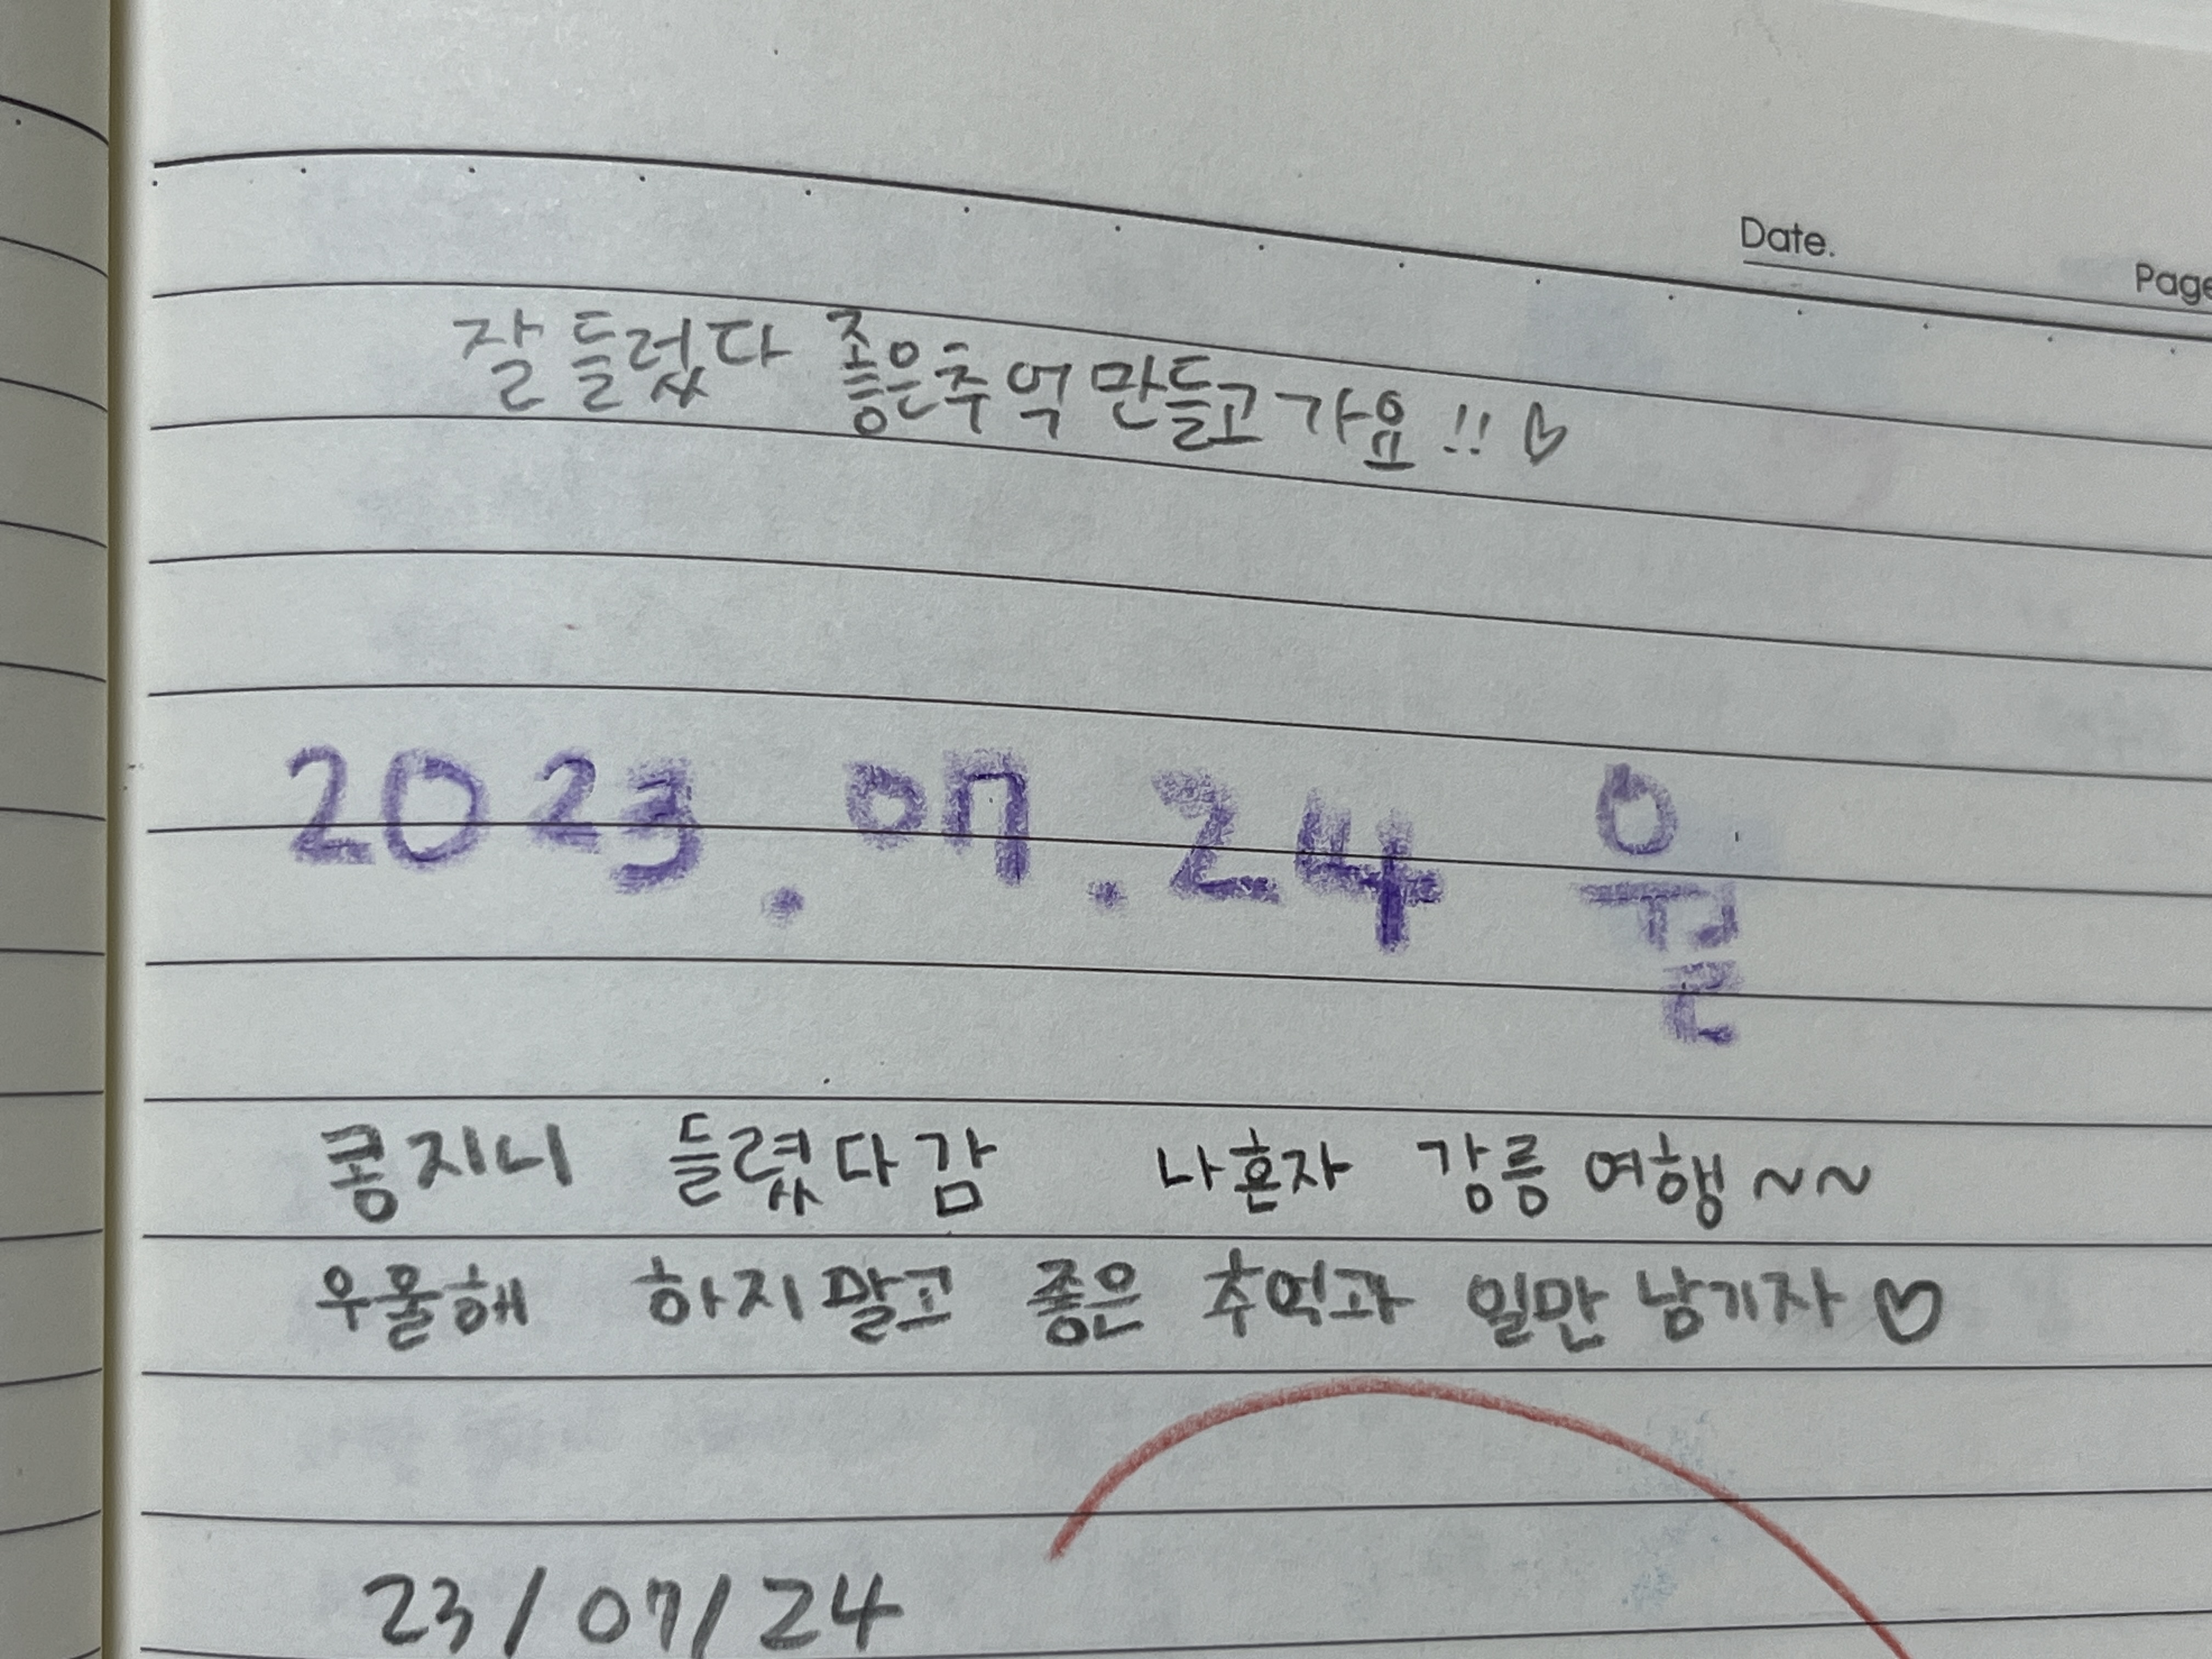 Date.
Page
잘 들렀다 좋은추억 만들고 가요!! ♡
2023.07.24 월
콩지니 들렸다감 나혼자 강릉 여행~~
우울해 하지말고 좋은 추억과 일만 남기자 ♡
23/07/24